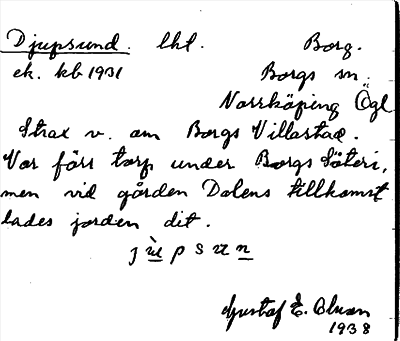 Djupsund. lht. Borg.
ek. kb 1931 Borgs sn.
Norrköping Ögl
Strax v. om Borgs Villastad.
Var förr torp under Borgs säteri,
men vid gården Dalens tillkomst
lades jorden dit.
j ù p s u n
Gustaf E.
1938